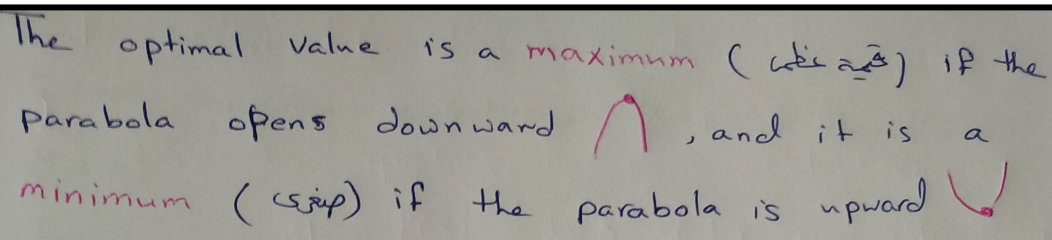 The optimal value is a maximum (قيمة عظمى) if the
parabola opens downward , and it is a
minimum (صغرى) if the parabola is upward